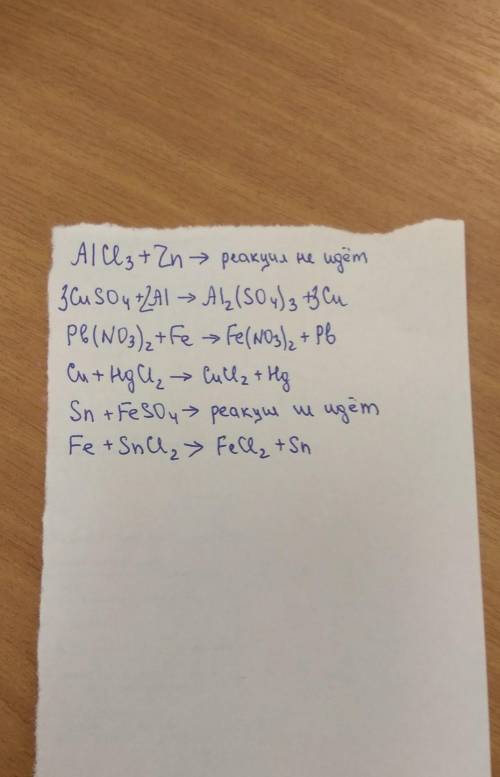 AlCl₃ + Zn → реакция не идёт
3CuSO₄ + 2Al → Al₂(SO₄)₃ + 3Cu
Pb(NO₃)₂ + Fe → Fe(NO₃)₂ + Pb
Cu + HgCl₂ → CuCl₂ + Hg
Sn + FeSO₄ → реакция не идёт
Fe + SnCl₂ → FeCl₂ + Sn